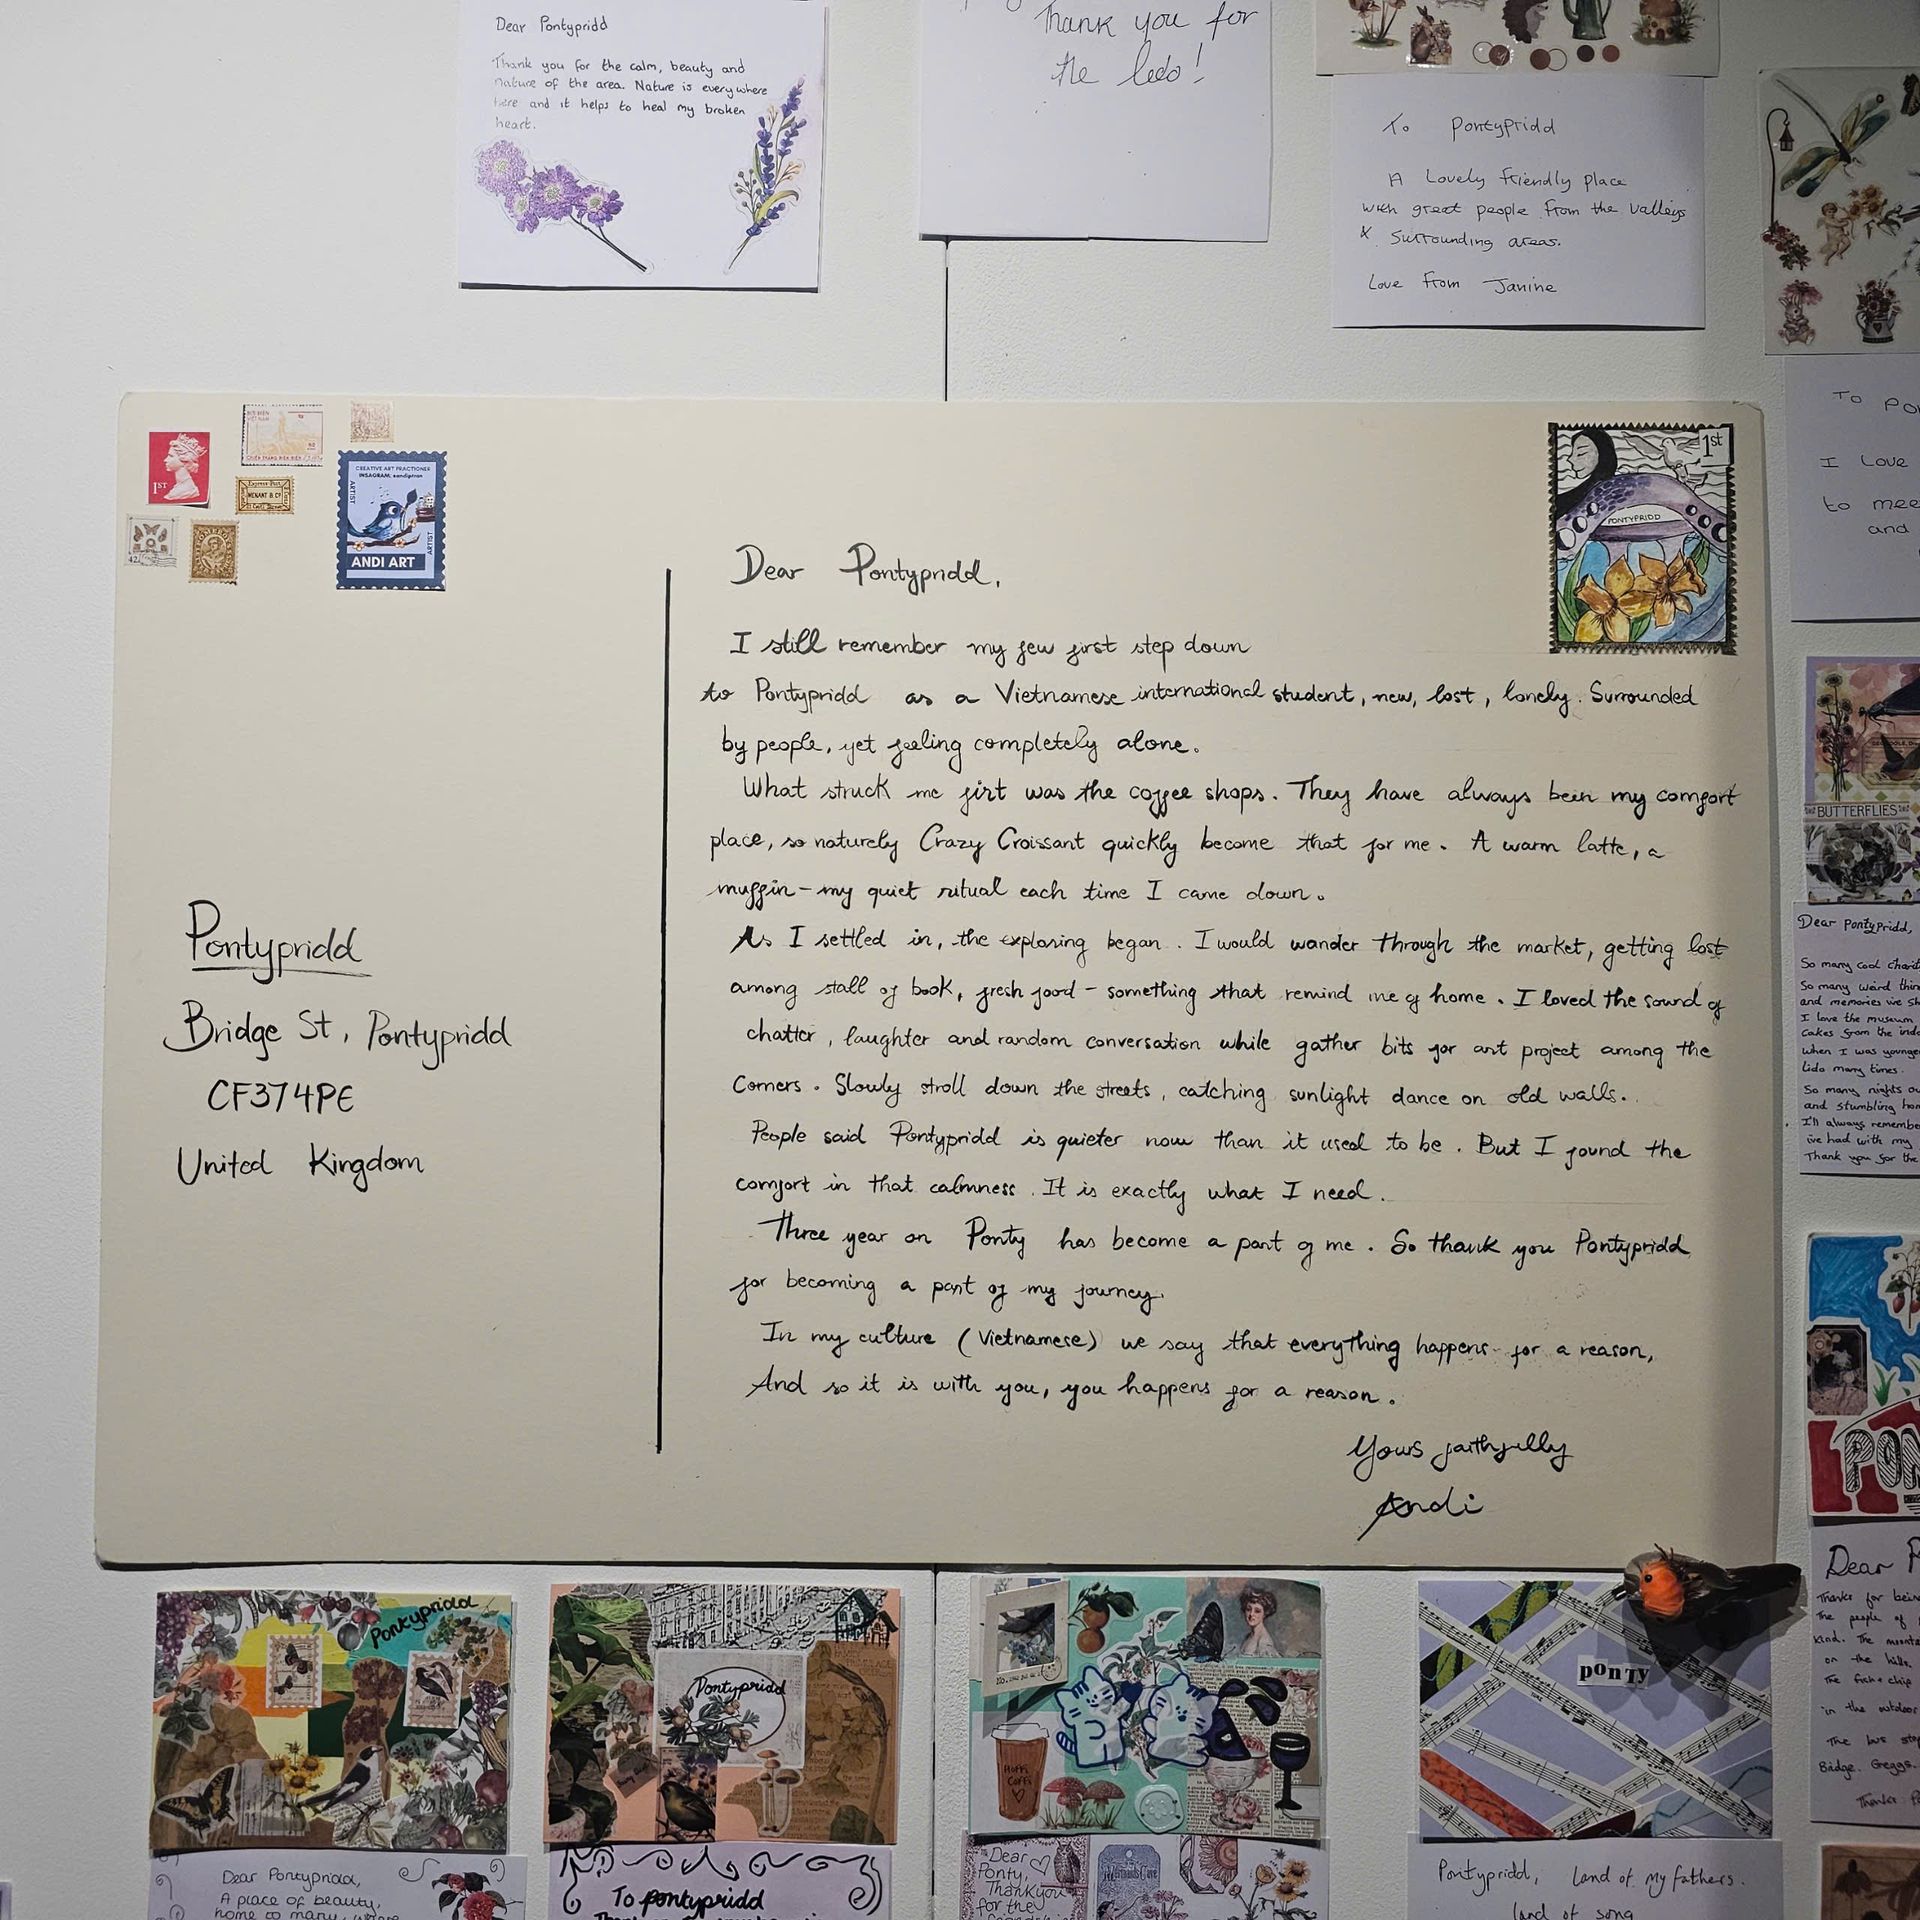 Dear Pontypridd
Thank you for the calm, beauty and
nature of the area. Nature is everywhere
here and it helps to heal my broken
heart.
Thank you for
the lido!
To Pontypridd
A Lovely friendly place
with great people from the valleys
& Surrounding areas.
Love from Janine
To
I Love
to mee
and
1ST
ĐIỆN BIÊN
VIỆT NAM
Express Post
MENANT & Co
42
CREATIVE ART PRACTIONER
INSAGRAM:
ARTIST
ARTIST
ANDI ART
1st
PONTYPRIDD
Pontypridd
Bridge St, Pontypridd
CF374PE
United Kingdom
Dear Pontypridd,
I still remember my few first step down
to Pontypridd as a Vietnamese international student, new, lost, lonely. Surrounded
by people, yet feeling completely alone.
What struck me firt was the coffee shops. They have always been my comfort
place, so naturely Crazy Croissant quickly become that for me. A warm latte, a
muffin - my quiet ritual each time I came down.
As I settled in, the exploring began. I would wander through the market, getting lost
among stall of book, fresh food - something that remind me of home. I loved the sound of
chatter, laughter and random conversation while gather bits for art project among the
corners. Slowly stroll down the streets, catching sunlight dance on old walls.
People said Pontypridd is quieter now than it used to be. But I found the
comfort in that calmness. It is exactly what I need.
Three year on Ponty has become a part of me. So thank you Pontypridd
for becoming a part of my journey.
In my culture (Vietnamese) we say that everything happens for a reason,
And so it is with you, you happens for a reason.
Yours faithfully
Andi
BUTTERFLIES
Dear Pontypridd,
So many cool
So many weird
and memories we
I love the museum
Cakes from the
When I was
Lido many times.
So many nights
and stumbling
I'll always remember
ive had with my
Thank you for the
PON
Dear
Thanks for
The people of
Kind. The
on the hills.
The fish & chip
in the outdoor
The bus
Bridge. Greggs.
Thanks
Pontypridd
Pontypridd
Hoffi
Coffi
PONTY
Dear Pontypridd,
A place of beauty,
home to many, where
To pontypridd
Dear
Ponty,
Thank you
for the
Pontypridd, Land of My fathers.
land of song